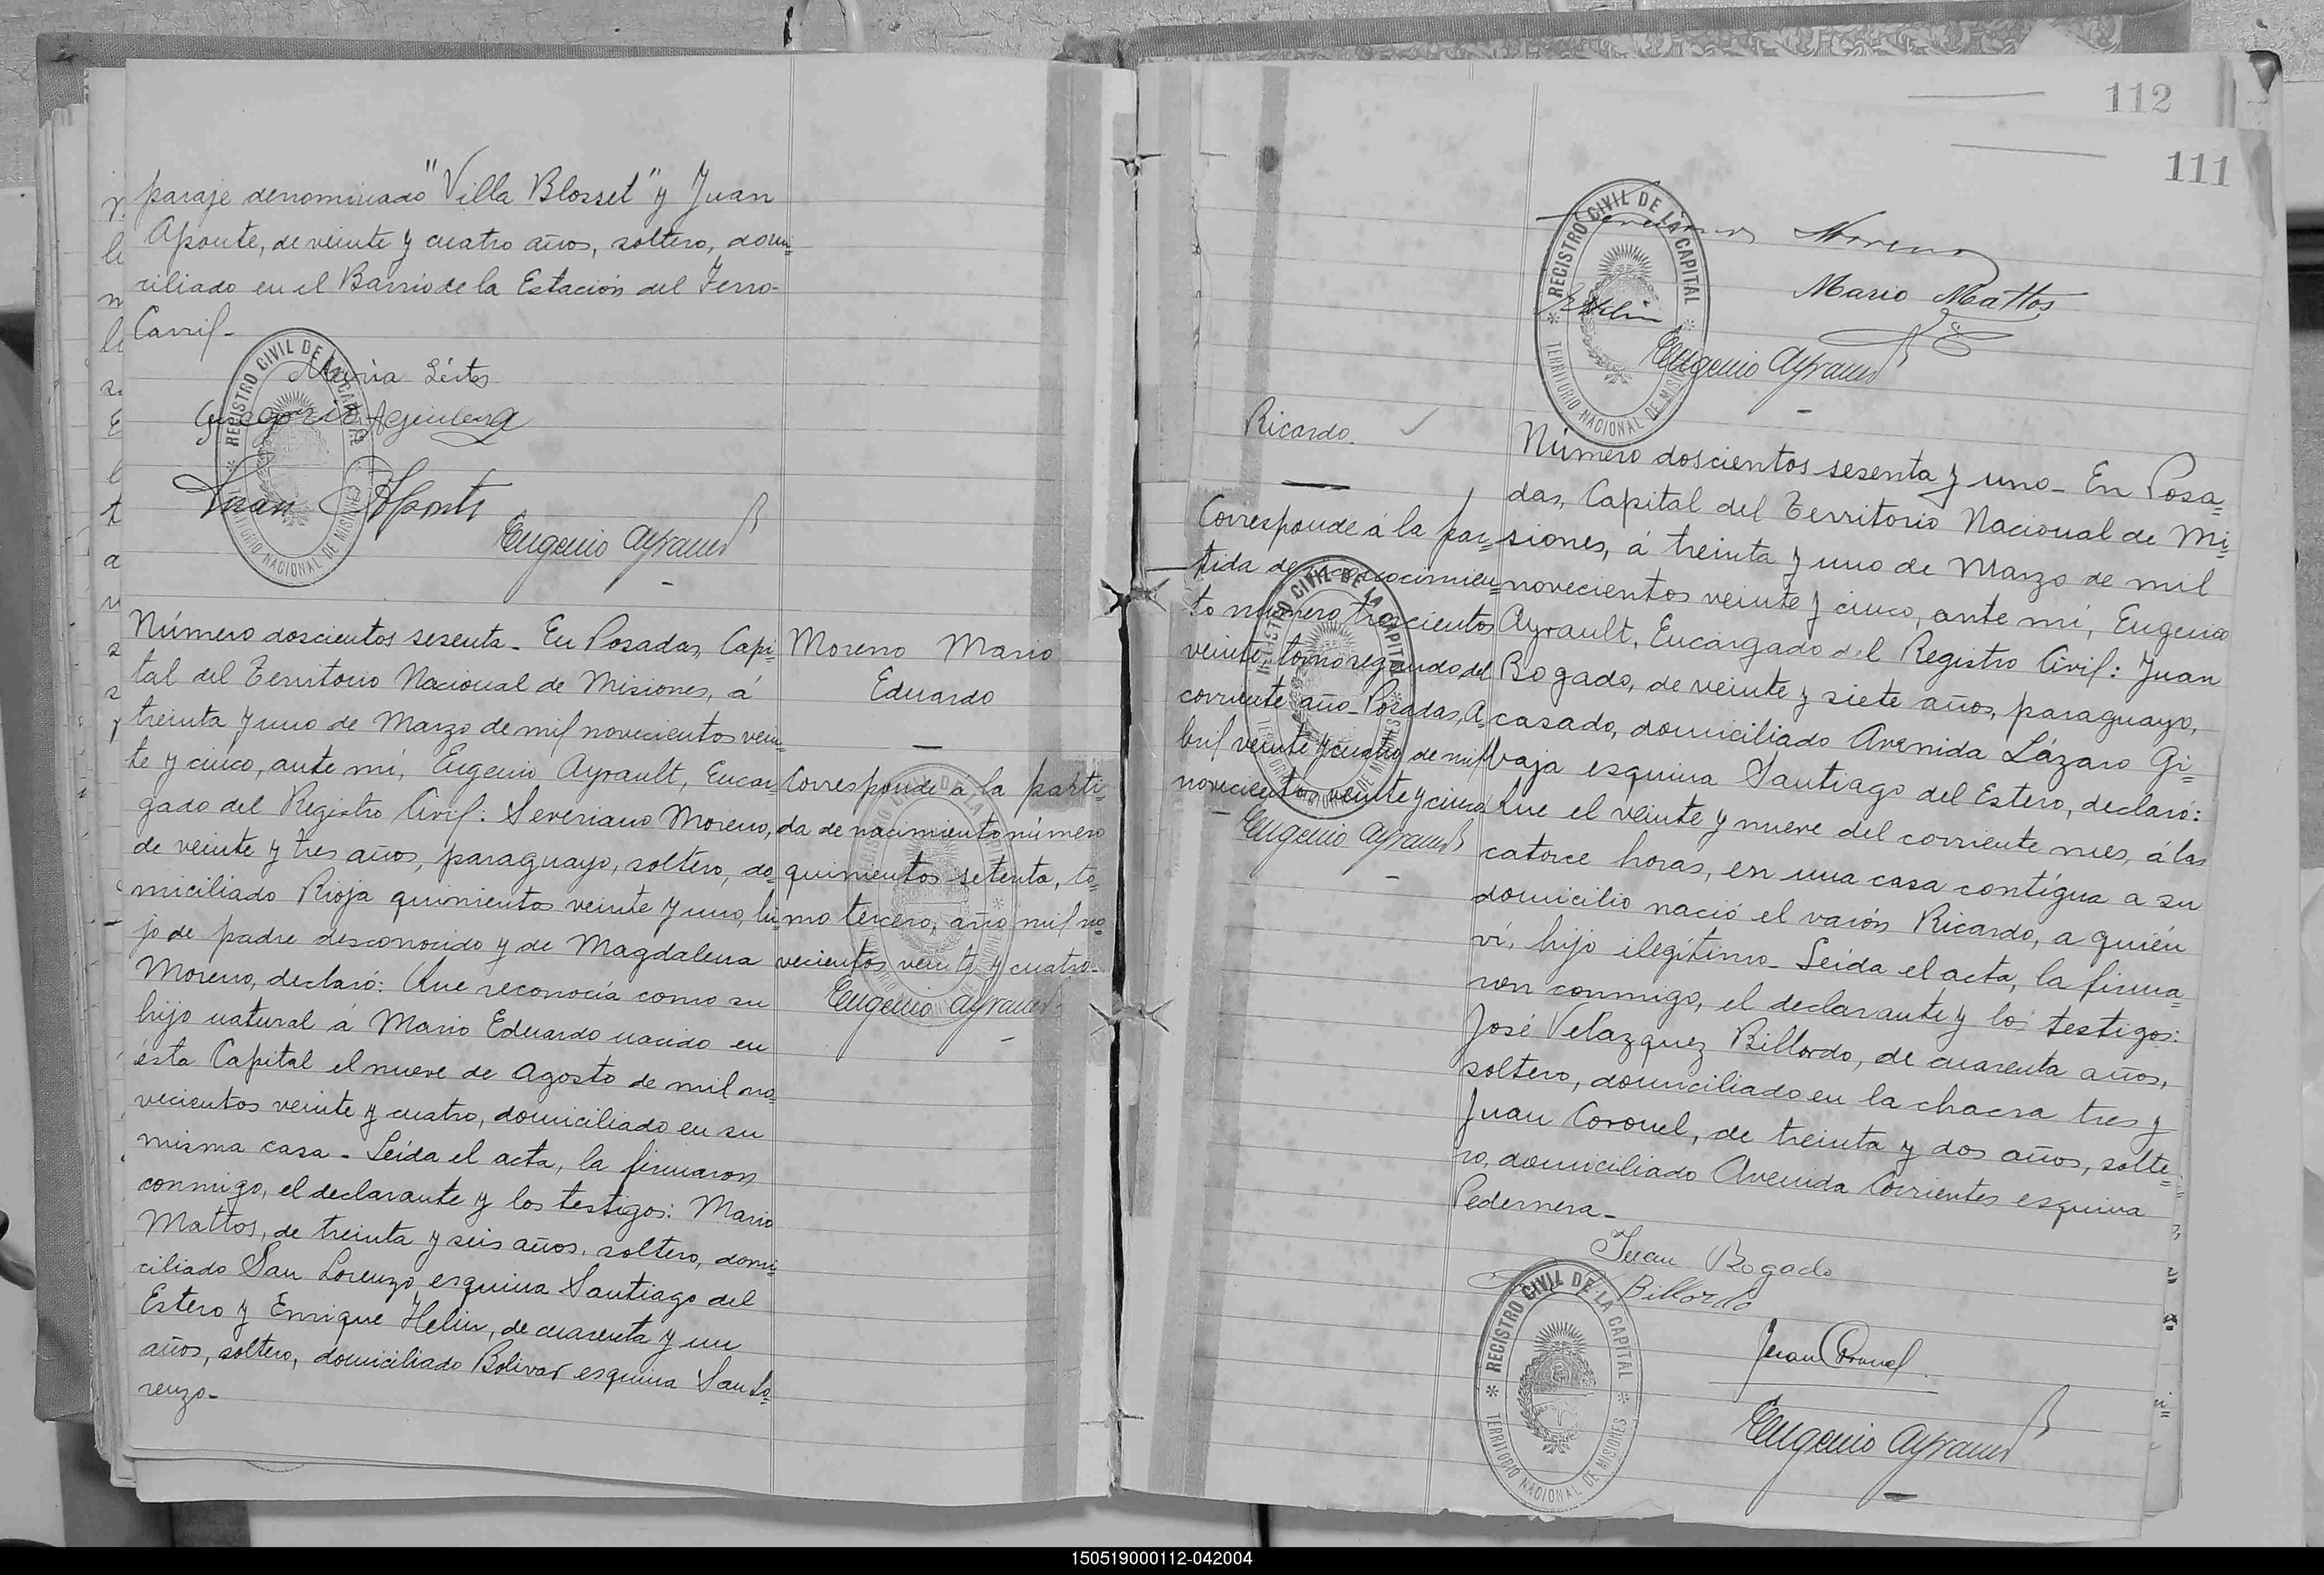 paraje denominado "Villa Blosset" y Juan
Aponte, de veinte y cuatro años, soltero, domi=
ciliado en el Barrio de la Estación del Ferro-
Carril-
REGISTRO CIVIL DE LA CAPITAL
TERRITORIO NACIONAL DE MISIONES
María
Gregorio
Juan Aponte
Eugenio Ayrault
Número doscientos sesenta- En Posadas, Capi=
tal del Territorio Nacional de Misiones, á
treinta y uno de Marzo de mil novecientos vein=
te y cinco, ante mí, Eugenio Ayrault, Encar=
gado del Registro Civil: Severiano Moreno,
de veinte y tres años, paraguayo, soltero, do=
miciliado Rioja quinientos veinte y uno, hi=
jo de padre desconocido y de Magdalena
Moreno, declaró: Que reconocía como su
hijo natural á Mario Eduardo nacido en
ésta Capital el nueve de Agosto de mil no=
vecientos veinte y cuatro, domiciliado en su
misma casa- Leída el acta, la firmaron
conmigo, el declarante y los testigos: Mario
Mattos, de treinta y seis años, soltero, domi=
ciliado San Lorenzo esquina Santiago del
Estero y Enrique Helin, de cuarenta y un
años, soltero, domiciliado Bolivar esquina San Lo=
renzo-
Moreno Mario
Eduardo
Corresponde a la parti=
da de nacimiento número
quinientos setenta, to=
mo tercero, año mil no=
vecientos veinte y cuatro-
Eugenio Ayrault
112
111
REGISTRO CIVIL DE LA CAPITAL
TERRITORIO NACIONAL DE MISIONES
Severiano Moreno
Mario Mattos
Helin
Eugenio Ayrault
Ricardo.
Corresponde á la par=
tida de reconocimien=
to número trescientos
veinte, tomo segundo del
corriente año- Posadas, A=
bril veinte y cuatro de mil
novecientos veinte y cinco
Eugenio Ayrault
REGISTRO CIVIL DE LA CAPITAL
Número doscientos sesenta y uno- En Posa=
das, Capital del Territorio Nacional de Mi=
siones, á treinta y uno de Marzo de mil
novecientos veinte y cinco, ante mí, Eugenio
Ayrault, Encargado del Registro Civil: Juan
Bogado, de veinte y siete años, paraguayo,
casado, domiciliado Avenida Lázaro Gi=
baja esquina Santiago del Estero, declaró:
Que el veinte y nueve del corriente mes, á las
catorce horas, en una casa contígua a su
domicilio nació el varón Ricardo, a quién
ví, hijo ilegítimo- Leída el acta, la firma=
ron conmigo, el declarante y los testigos:
José Velazquez Billordo, de cuarenta años,
soltero, domiciliado en la chacra tres y
Juan Coronel, de treinta y dos años, solte=
ro, domiciliado Avenida Corrientes esquina
Pedernera-
Juan Bogado
Billordo
Juan Coronel
Eugenio Ayrault
REGISTRO CIVIL DE LA CAPITAL
TERRITORIO NACIONAL DE MISIONES
150519000112-042004